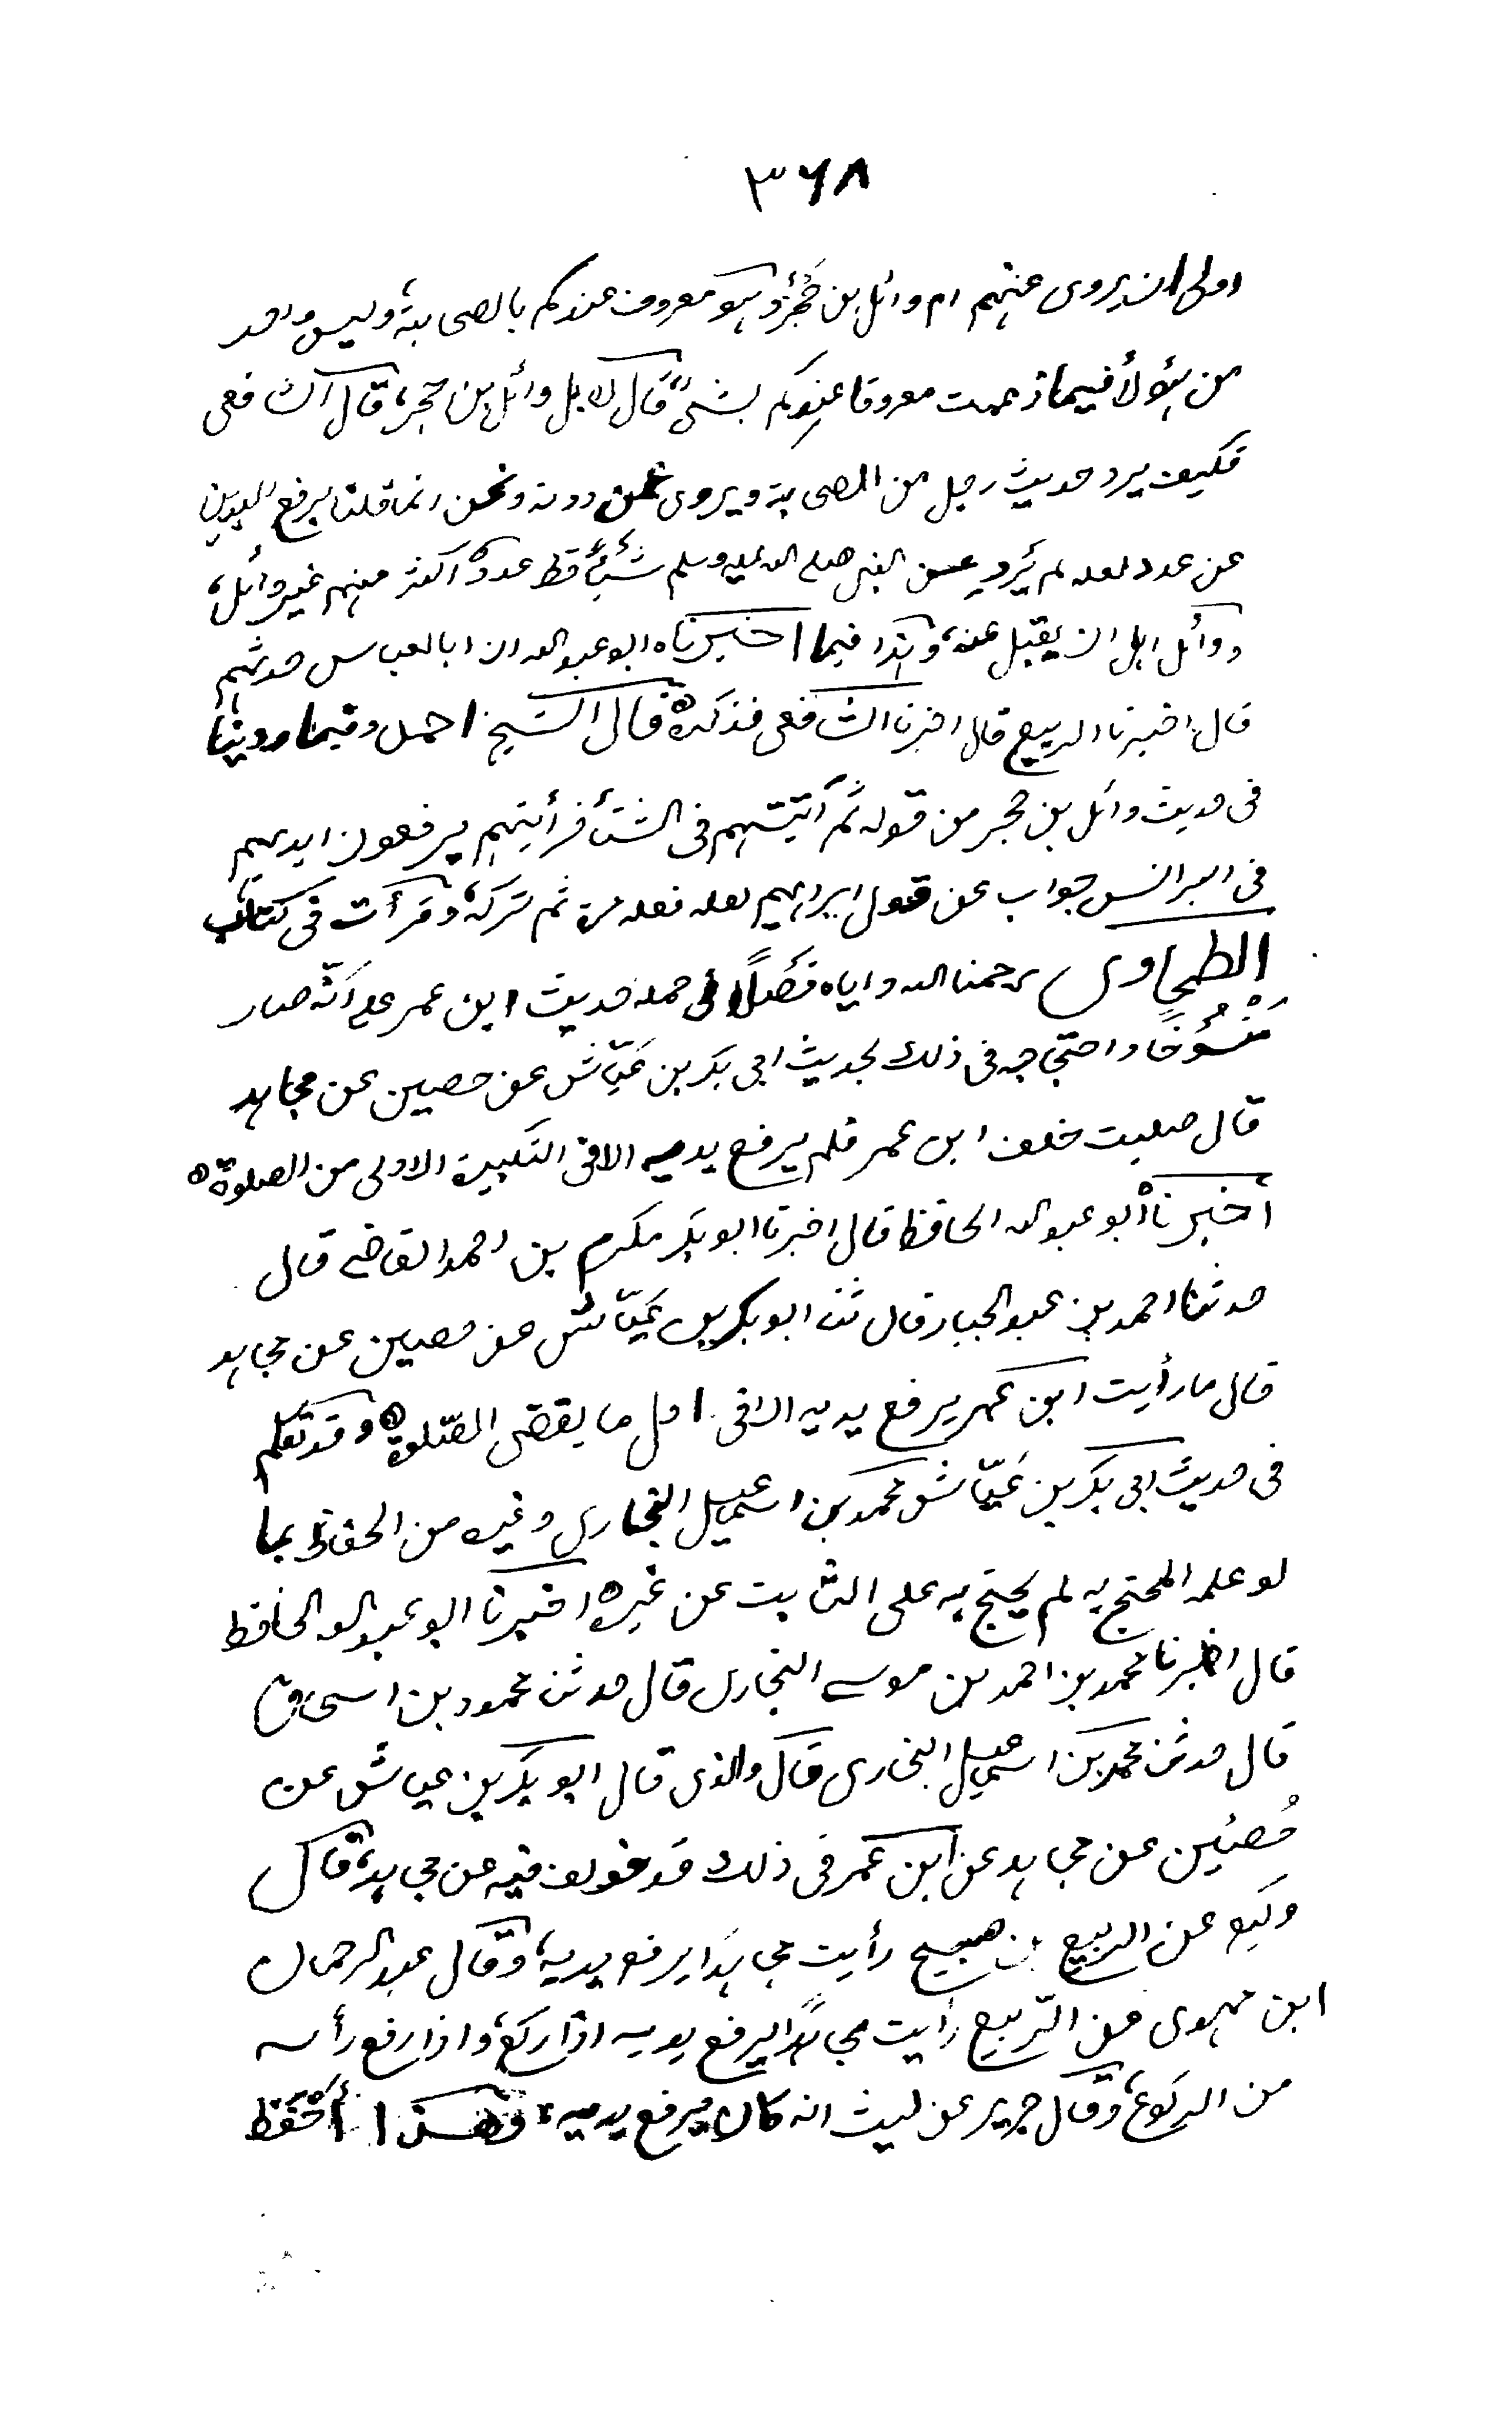 ٣٦٨
اولى ان يروى عنهم ام وائل بن حُجْرٍ وهو معروف عندكم بالصحابة، وليس واحد
من هؤلاء فيما زعمت معروفا عندكم بشئ، قال لا بل وائل بن حجر، قال الشافعى
فكيف يرد حديث رجل من الصحابة ويروى عمن دونه ونحن انما قلنا برفع اليدين
عن عدد لعله لم يُروِ عن النبى صلى الله عليه وسلم شيأً قط عددٌ اكثر منهم غير وائل،
ووائل اهل ان يقبل عنه، وهذا فيما اخبرناه ابو عبد الله ان ابا العباس حدثهم
قال اخبرنا الربيع قال اخبرنا الشافعى فذكره قال الشيخ احمد وفيما روينا
فى حديث وائل بن حجر من قوله ثم أتيتهم فى الشتأ فرأيتهم يرفعون ايديهم
فى البرانس جواب عن قول ابراهيم لعله فعله مرة ثم تركه، وقرأت فى كتاب
الطحاوى رحمنا الله واياه فصلًا فى حمله حديث ابن عمر على أنّه صار
مَنْسُوْخًا واحتجاجه فى ذلك بحديث ابى بكر بن عَيّاش عن حصين عن مجاهد
قال صليت خلف ابن عمر فلم يرفع يديه الا فى التكبيرة الاولى من الصلوة ه
أخبرناه أبو عبد الله الحافظ قال اخبرنا ابو بكر مكرم بن احمد القاضى قال
حدثنا احمد بن عبد الجبار قال ثنا ابو بكر بن عَيّاش عن حصين عن مجاهد
قال ما رأيت ابن عمر يرفع يديه الا فى اول ما يفتتح الصّلوة ه وقد تكلم
فى حديث ابى بكر بن عَيّاش محمد بن اسمعيل البخارى وغيره من الحفاظ بما
لو علمه المحتج به لم يحتج به على الثابت عن غيره اخبرنا ابو عبد الله الحافظ
قال اخبرنا محمد بن احمد بن موسى البخارى قال حدثنا محمود بن اسحاق
قال حدثنا محمد بن اسمعيل البخارى قال والذى قال ابو بكر بن عياش عن
حُصَين عن مجاهد عن ابن عمر فى ذلك قد خولف فيه عن مجاهد، قال
وكيع عن الربيع بن صبيح رأيت مجاهدًا يرفع يديه، وقال عبد الرحمان
ابن مهدى عن الرّبيع رأيت مجاهدًا يرفع يديه اذا ركع، واذا رفع رأسه
من الركوع، وقال جرير عن ليث انه كان يرفع يديه، وهذا أحْفَظ